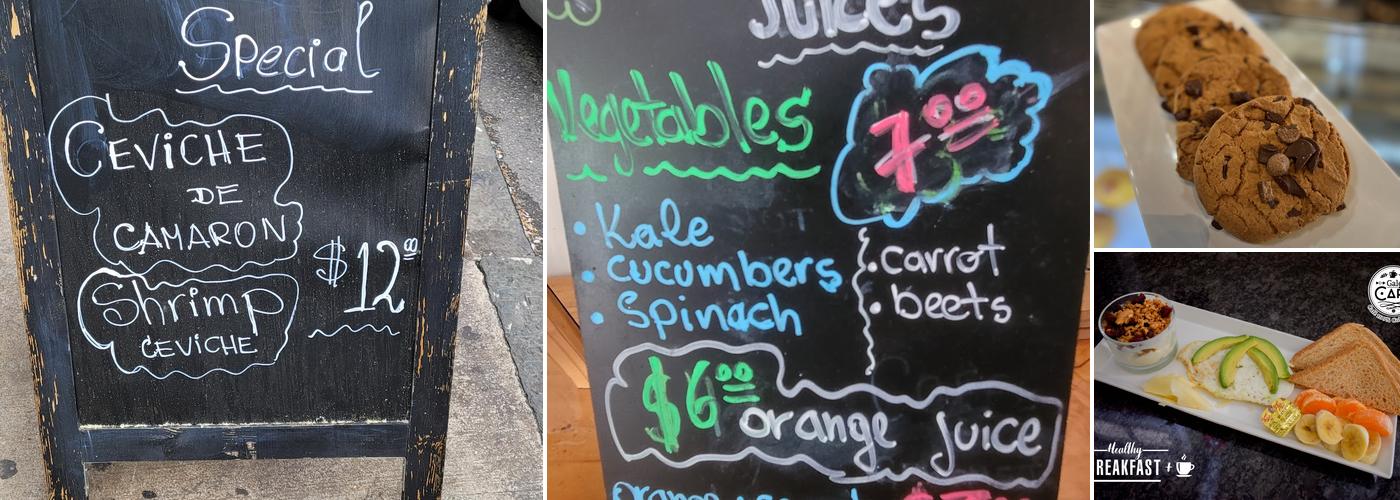 Special
CEVICHE
DE
CAMARON
Shrimp
CEVICHE
$12.00
Juices
Vegetables
7.00
• Kale
• cucumbers
• Spinach
• carrot
• beets
$6.00 orange juice
Healthy
REAKFAST +